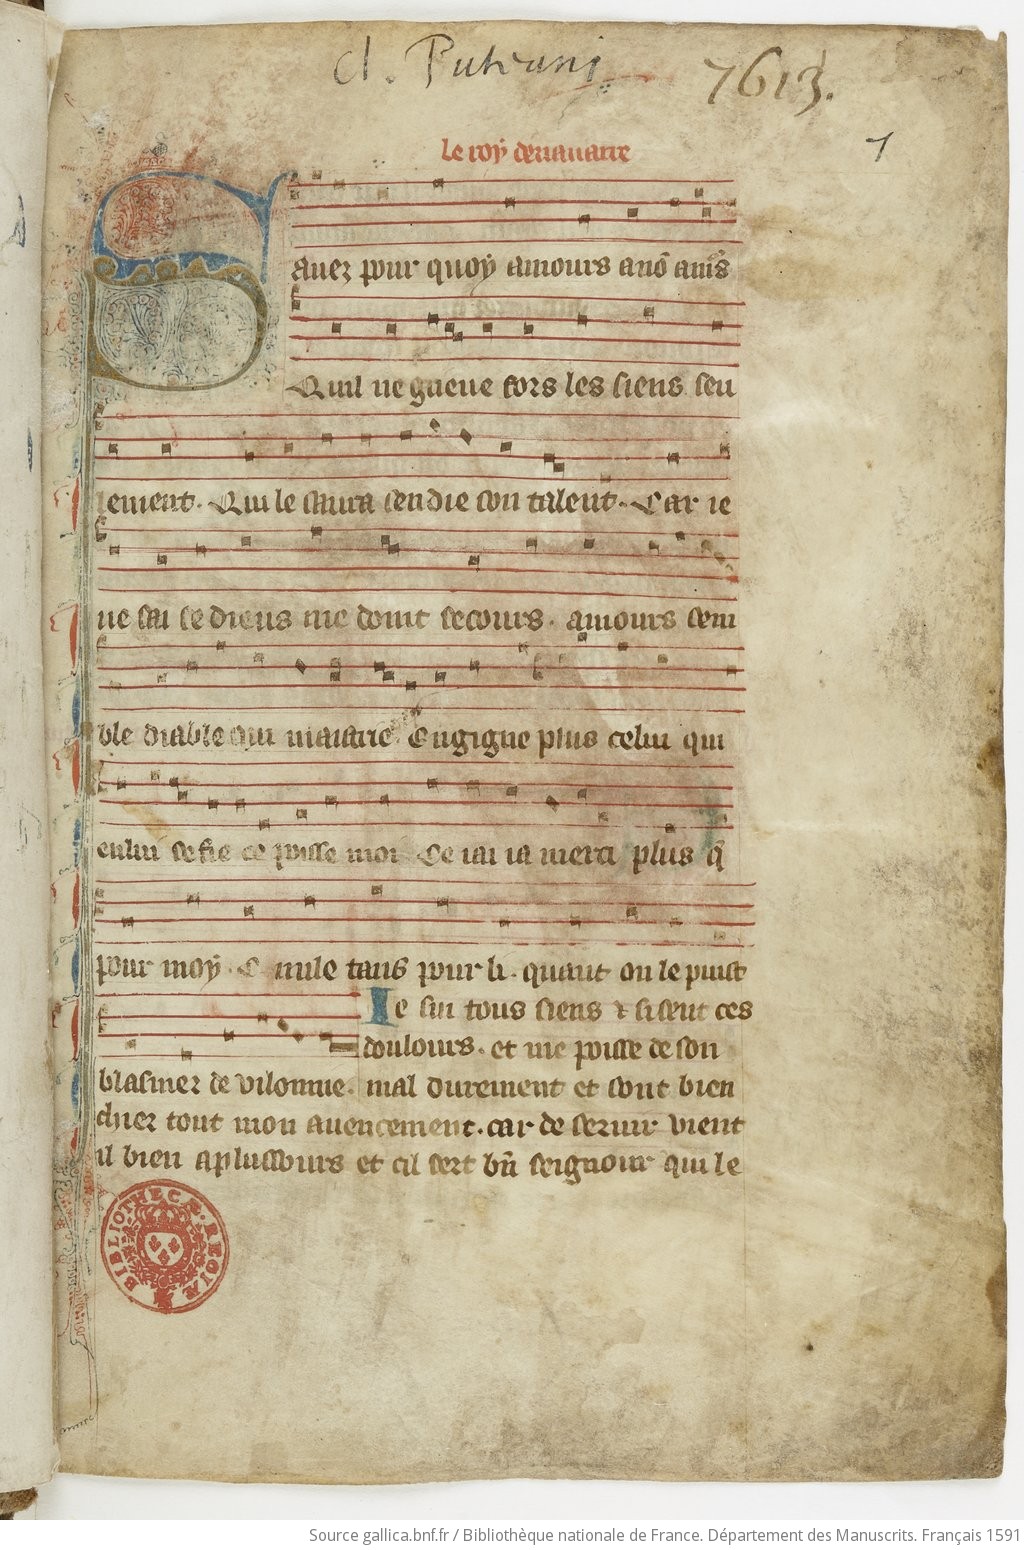 Cl. Puteani
7613.
1
le roy de nauarre
Sauez pour quoy amours a nō amrs
Quil ne gueue fors les siens seu
lement. Qui le saura sen die son talent. Car ie
ne sai se dieus me doint secours. amours sem
ble diable qui maistrie. Engigne plus celui qui
en lui se fie ce poisse moi De iai ia merci plus q̄
pour moy. E mile tans pour li. quant on le puist
Ie sui tous siens ⁊ si sent ces
doulours. et me poisse de son
blasmer de vilonnie. mal durement et sont bien
chier tout mon auencement. car de seruir vient
il bien a plusours et cil sert bn̄ seignour qui le
BIBLIOTHECÆ REGIÆ
Source gallica.bnf.fr / Bibliothèque nationale de France. Département des Manuscrits. Français 1591